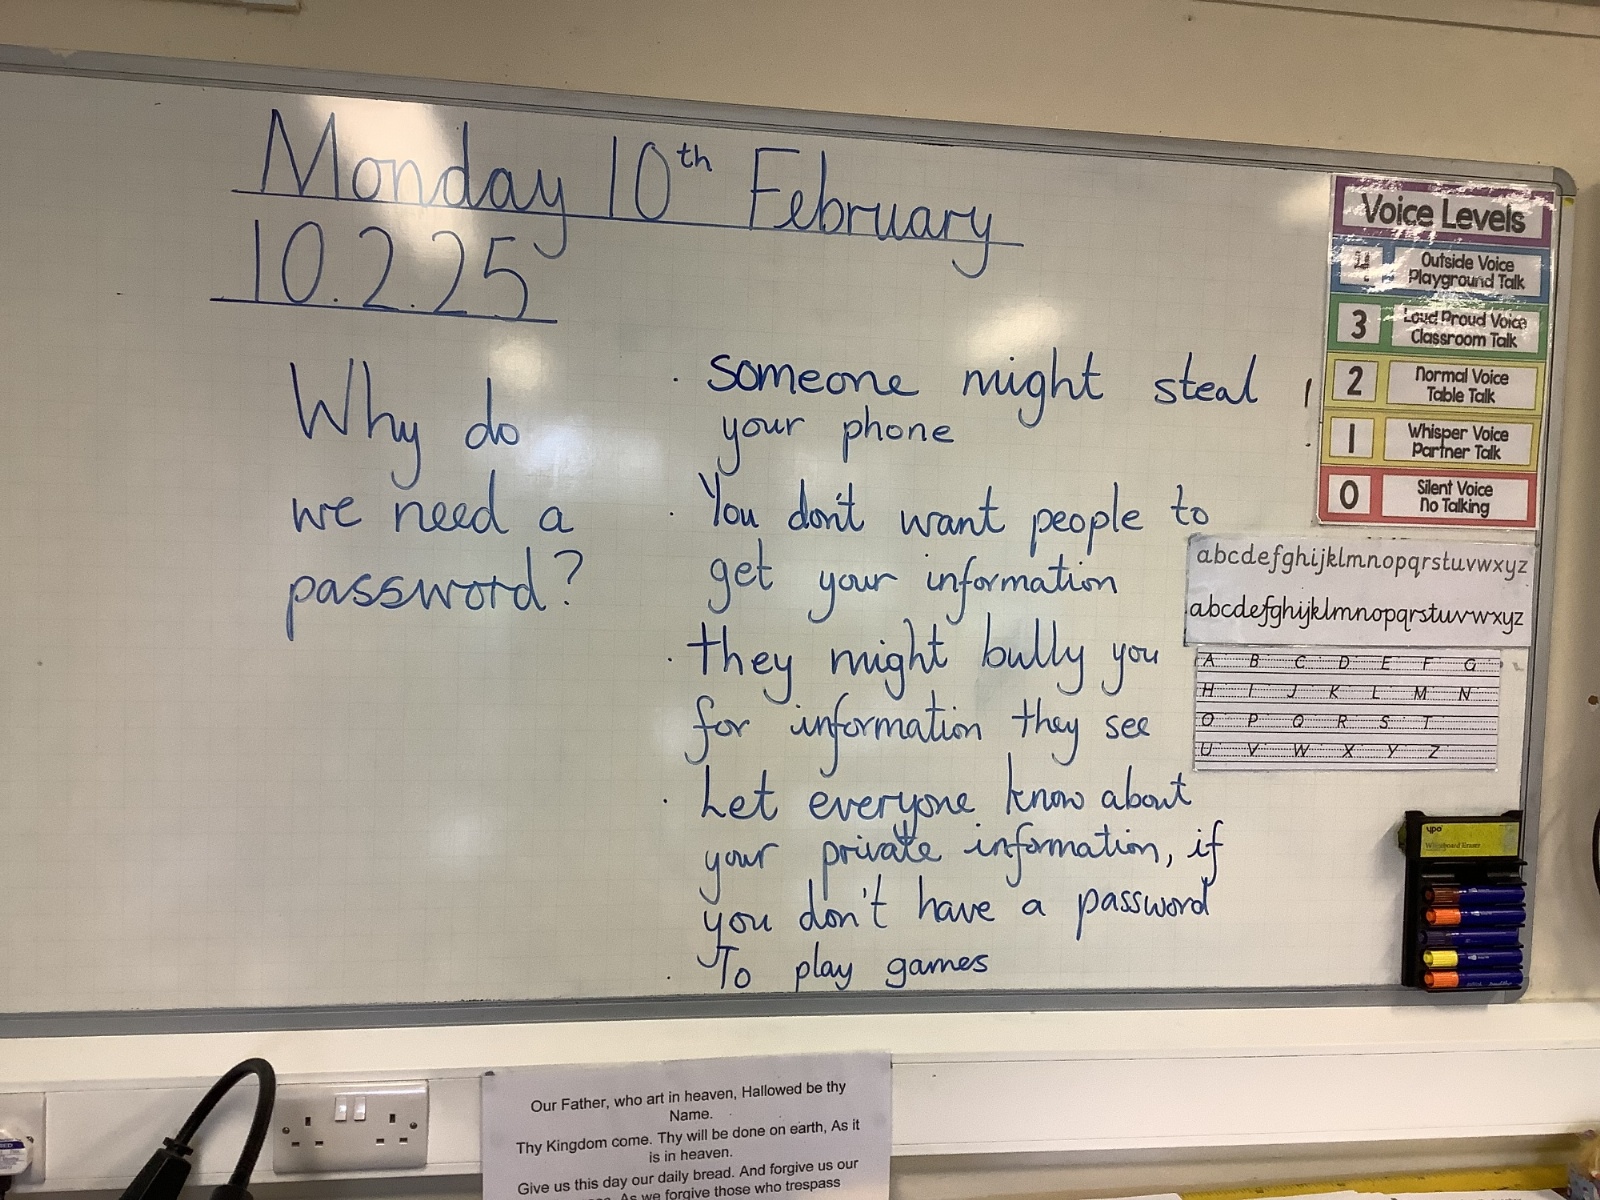 Monday 10th February
10.2.25
Why do
we need a
password?
· someone might steal
your phone
· You don't want people to
get your information
· they might bully you
for information they see
· Let everyone know about
your private information, if
you don't have a password
· To play games
Voice Levels
4 Outside Voice
Playground Talk
3 Loud Proud Voice
Classroom Talk
2 Normal Voice
Table Talk
1 Whisper Voice
Partner Talk
0 Silent Voice
No Talking
abcdefghijklmnopqrstuvwxyz
abcdefghijklmnopqrstuvwxyz
A B C D E F G
H I J K L M N
O P Q R S T
U V W X Y Z
ypo
Whiteboard Eraser
Our Father, who art in heaven, Hallowed be thy
Name.
Thy Kingdom come. Thy will be done on earth, As it
is in heaven.
Give us this day our daily bread. And forgive us our
As we forgive those who trespass